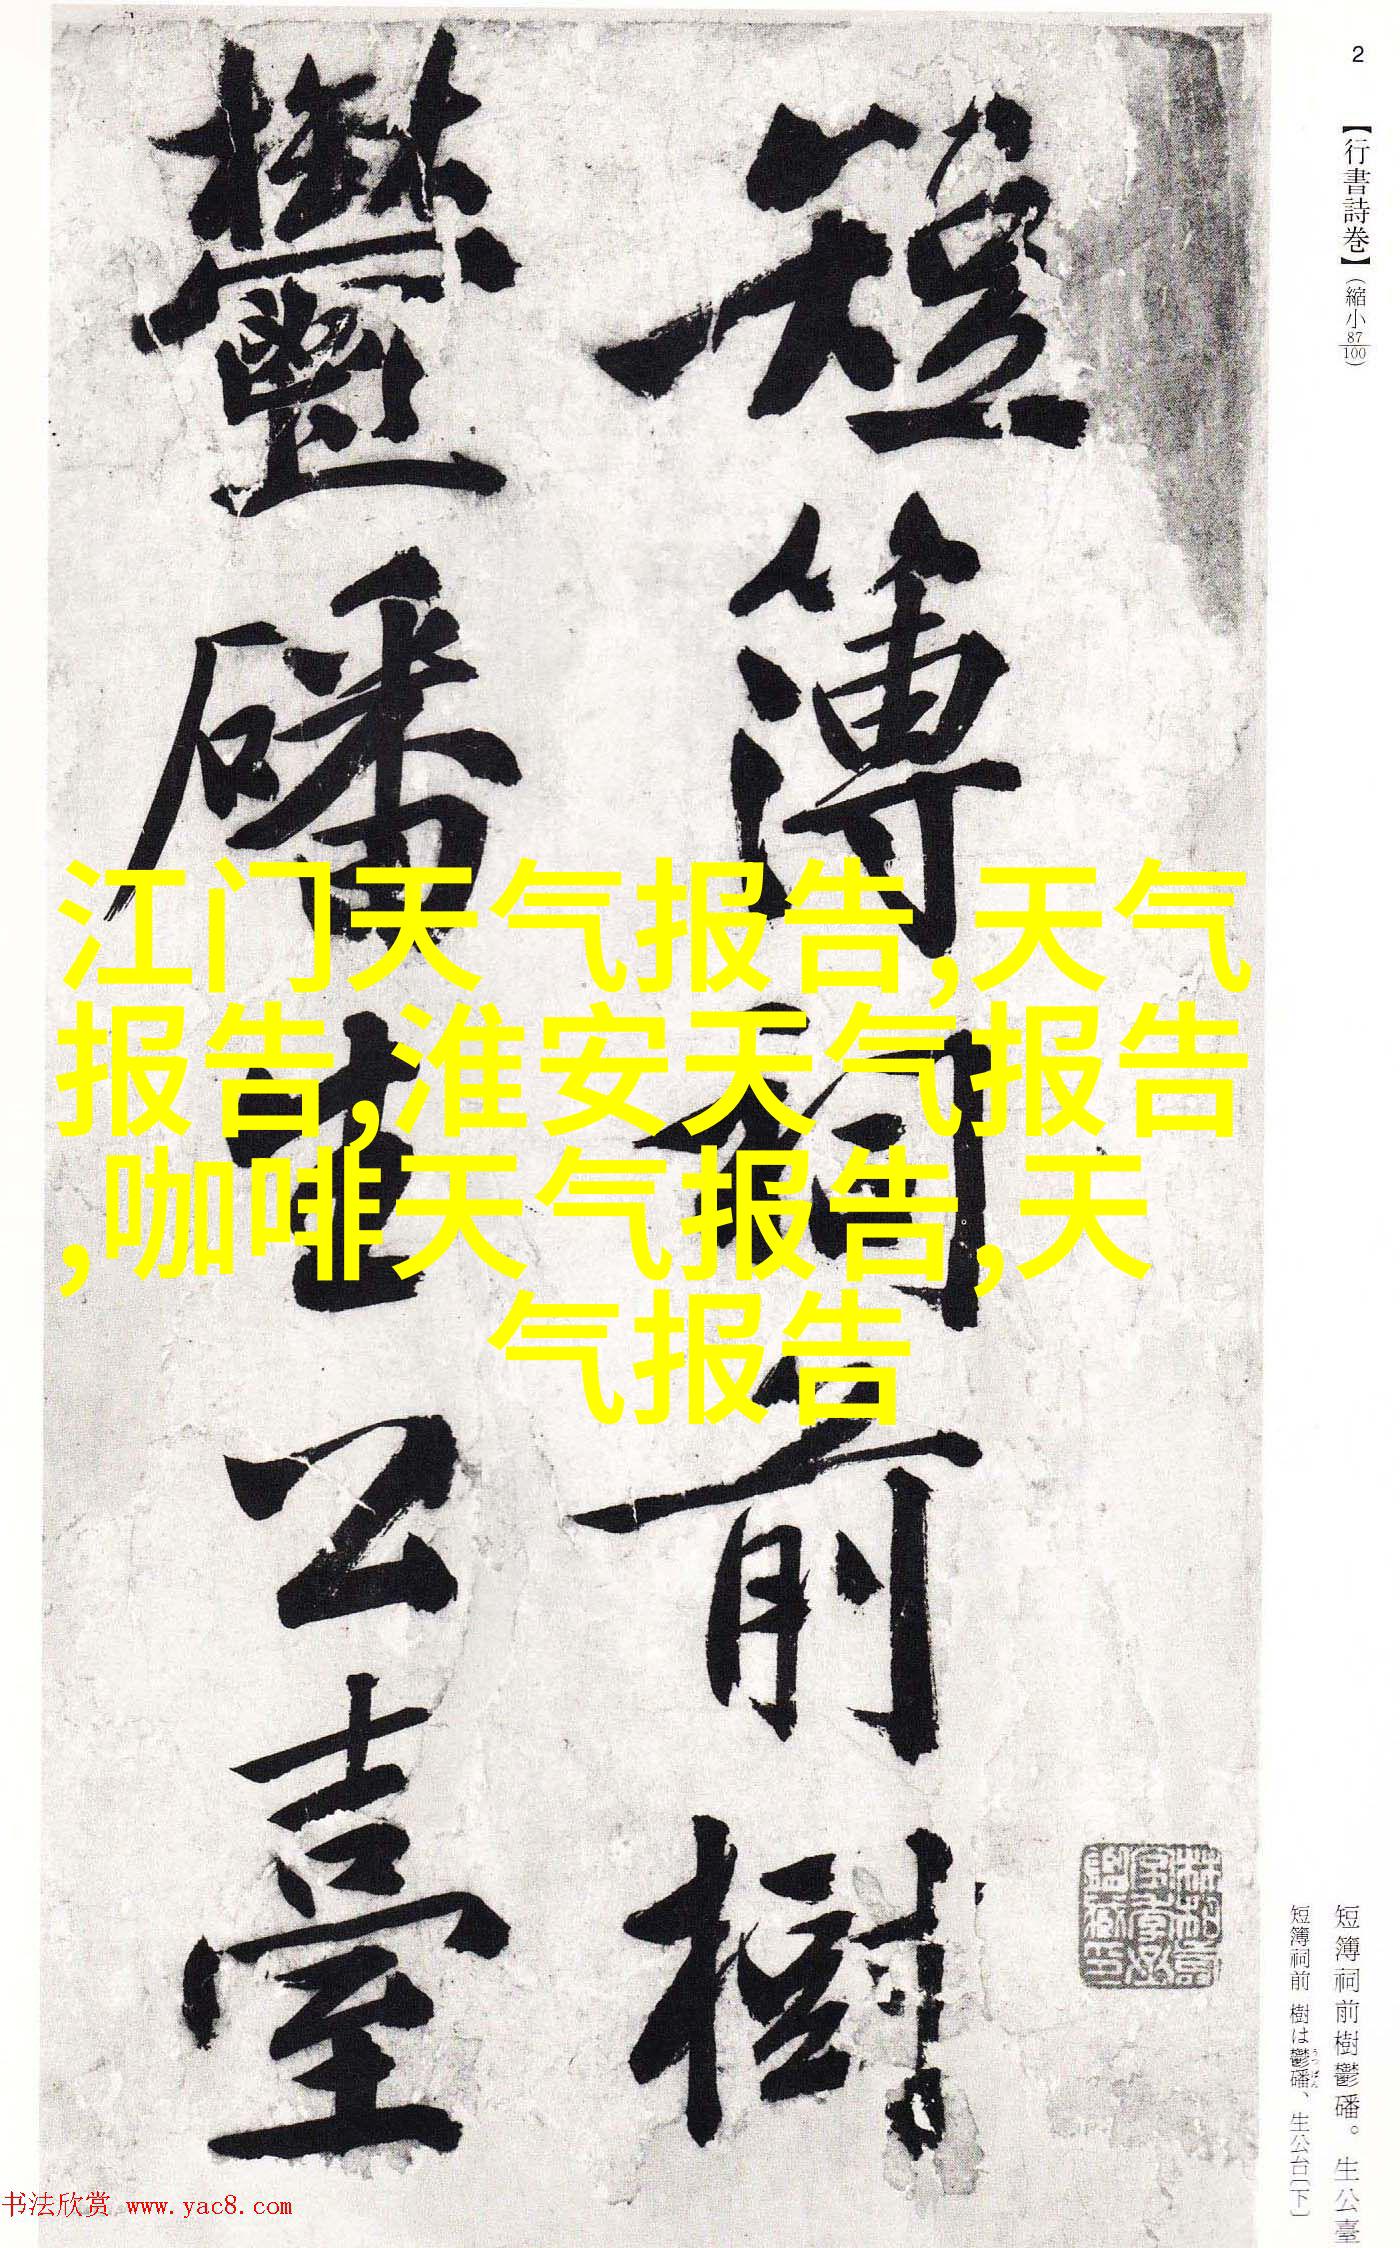 2
【行書詩巻】(縮小87/100)
短簿祠前樹
鬱磻生公臺
江门天气报告,天气
报告,淮安天气报告
,咖啡天气报告,天
气报告
短簿祠前樹鬱磻。生公臺
短簿祠前 樹は鬱磻、生公台〔下〕
うつばん
书法欣赏 www.yac8.com